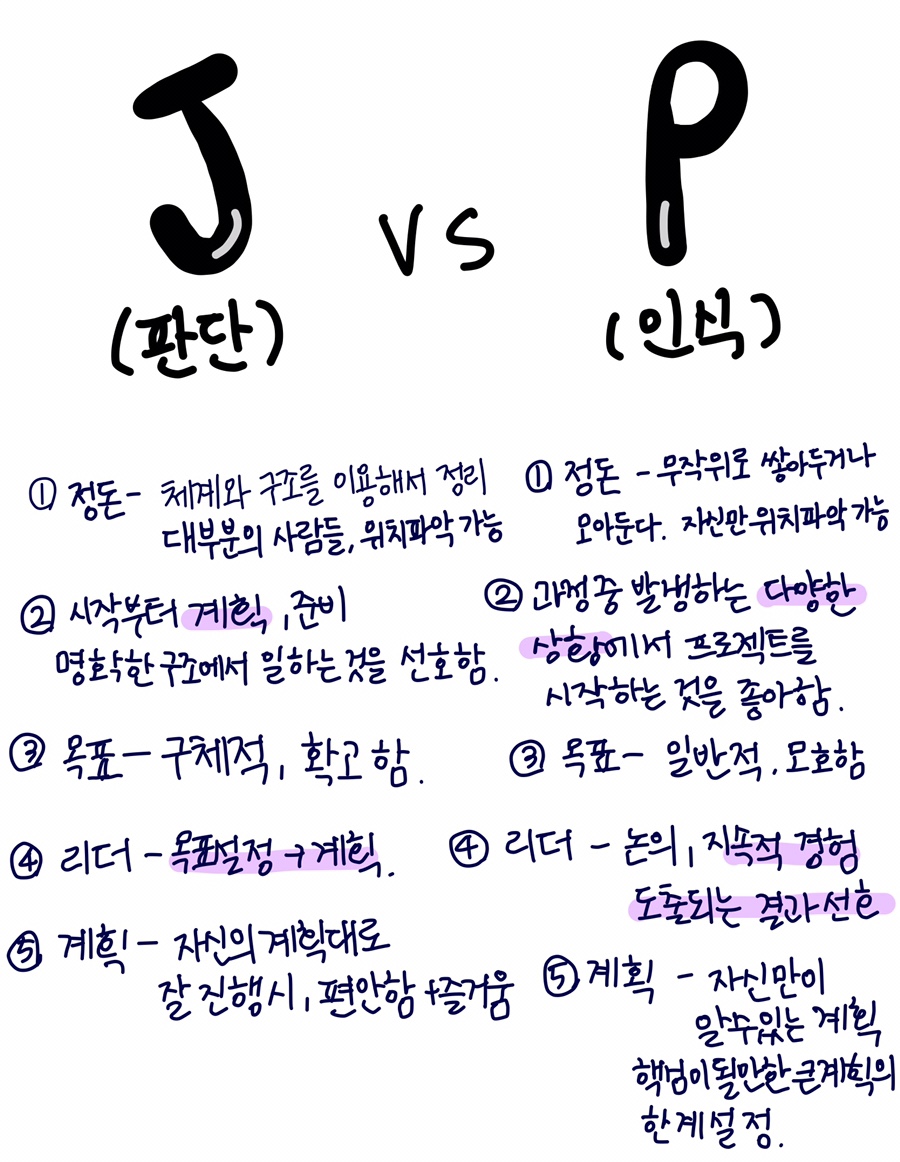 J vs P
(판단)
(인식)
① 정돈- 체계와 구조를 이용해서 정리
대부분의 사람들, 위치파악 가능
② 시작부터 계획, 준비
명확한 구조에서 일하는 것을 선호함.
③ 목표 - 구체적, 확고함.
④ 리더 - 목표설정 → 계획.
⑤ 계획 - 자신의 계획대로
잘 진행시, 편안함 + 즐거움
① 정돈 - 무작위로 쌓아두거나
모아둔다. 자신만 위치파악 가능
② 과정 중 발생하는 다양한
상황에서 프로젝트를
시작하는 것을 좋아함.
③ 목표 - 일반적, 모호함
④ 리더 - 논의, 지속적 경험
도출되는 결과 선호
⑤ 계획 - 자신만이
알 수 있는 계획
핵심이 될만한 큰 계획의
한계설정.